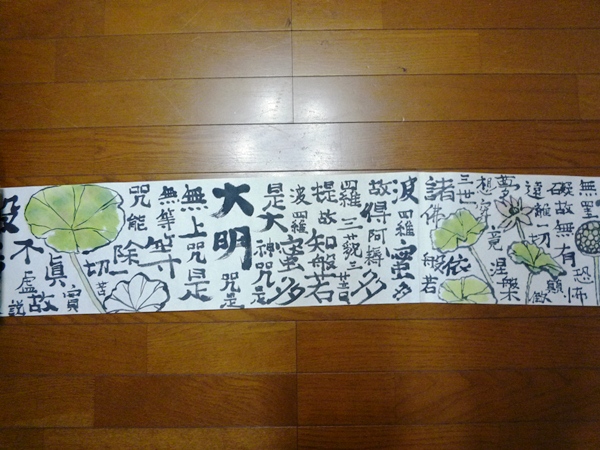 無罣
礙故無有恐怖
遠離一切顛倒
夢
想究竟涅槃
三世
諸佛依般若
波羅蜜多
故得阿耨多
羅三藐三菩
提故知般若
波羅蜜多
是大神咒是
大明咒是
無上咒是
無等等
咒能除一切苦
眞實
不虛故說
般